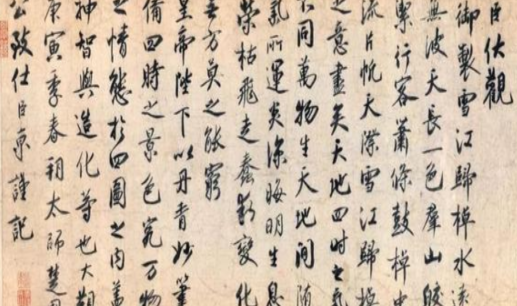 臣伏觀
御製雪江歸棹水遠
無波天長一色群山皎
潔行客蕭條鼓棹中
流片帆天際雪江歸棹
之意盡矣天地四時之氣
不同萬物生天地間隨
氣所運炎涼晦明生息
榮枯飛走蠢動變化
無方莫之能窮
皇帝陛下以丹青妙筆
備四時之景色究万物
之情態於四圖之内蓋
神智與造化等也大觀
庚寅季春朔太師楚國
公致仕臣京謹記